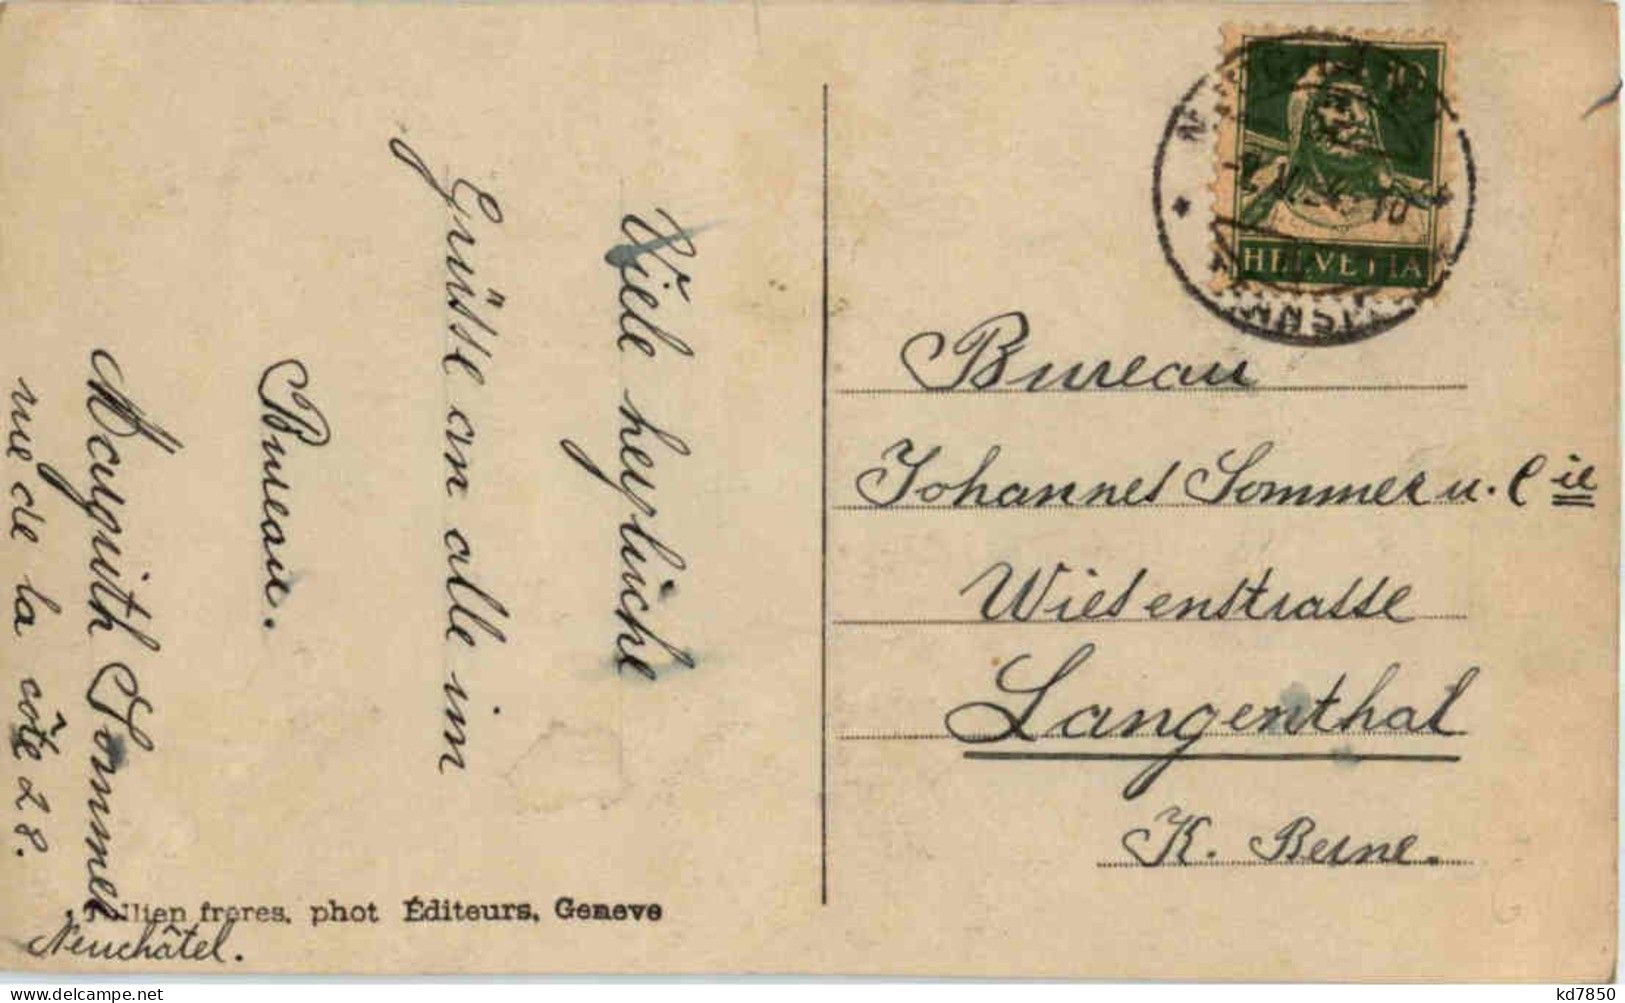 Viele herzliche
Grüsse an alle im
Bureau.
Margrith Sommer
rue de la côte 28.
Neuchâtel.
Jullien frères, phot Éditeurs, Geneve
HELVETIA
Bureau
Johannes Sommer u. Cie
Wiesenstrasse
Langenthal
K. Berne.
kd7850